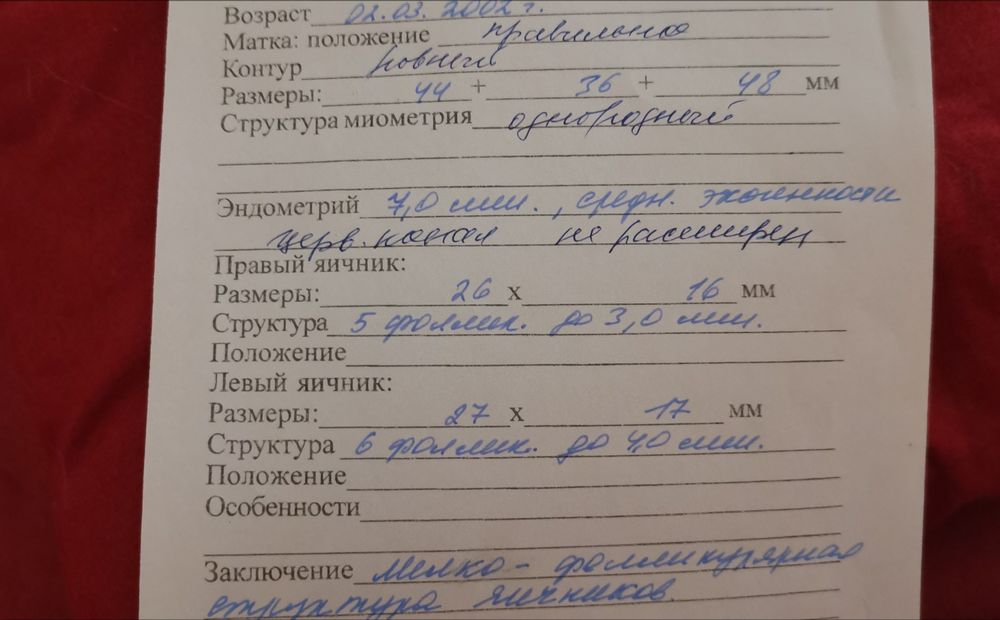 Возраст 02.03.2002 г.
Матка: положение правильное
Контур ровный
Размеры: 44 + 36 + 48 мм
Структура миометрия однородный
Эндометрий 7,0 мм., средн. эхогенности
церв. канал не расширен
Правый яичник:
Размеры: 26 х 16 мм
Структура 5 фоллик. до 3,0 мм.
Положение
Левый яичник:
Размеры: 27 х 17 мм
Структура 6 фоллик. до 4,0 мм.
Положение
Особенности
Заключение Мелко-фолликулярная
структура яичников.